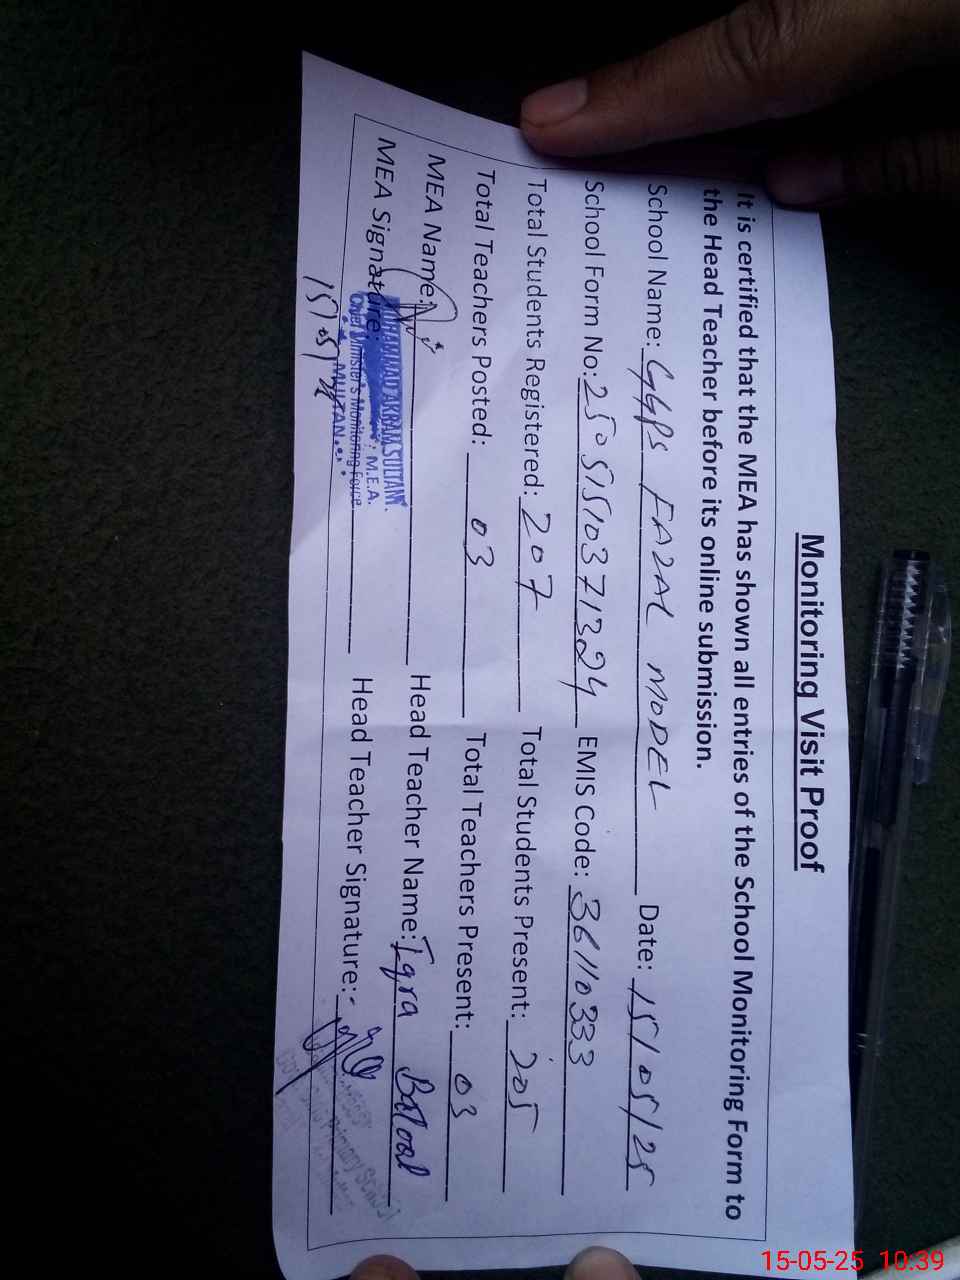 Monitoring Visit Proof
It is certified that the MEA has shown all entries of the School Monitoring Form to
the Head Teacher before its online submission.
School Name: GGPS FAZAL MODEL Date: 15/05/25
School Form No: 25051510371324 EMIS Code: 36110333
Total Students Registered: 207 Total Students Present: 205
Total Teachers Posted: 03 Total Teachers Present: 03
MEA Name: Head Teacher Name: Iqra Batool
MUHAMMAD AKRAM SULTAN
M.E.A.
MEA Signature: Head Teacher Signature:
Chief Minister's Monitoring Force
MULTAN
Primary School
15-05-25 10:39